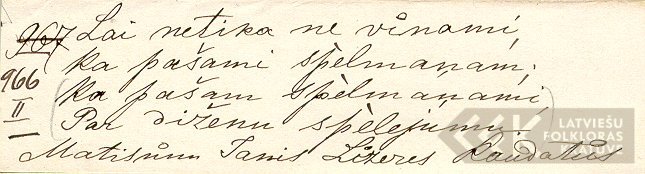 967 Lai netika ne vůnami,
966 ka pašami spēlmaņam,
II (Ka pašam spēlmaņami
Par diženu spēlejumu.)
Matisůnu Janis Lizeres Kaudatůs
LATVIEŠU
FOLKLORAS
KRĀTUVE